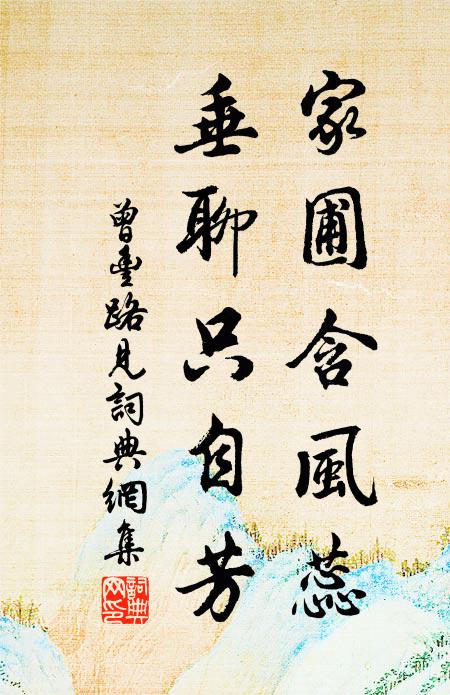 家圃含風蕊
垂聊只自芳
曾豐路見詞典網集
詞典網印